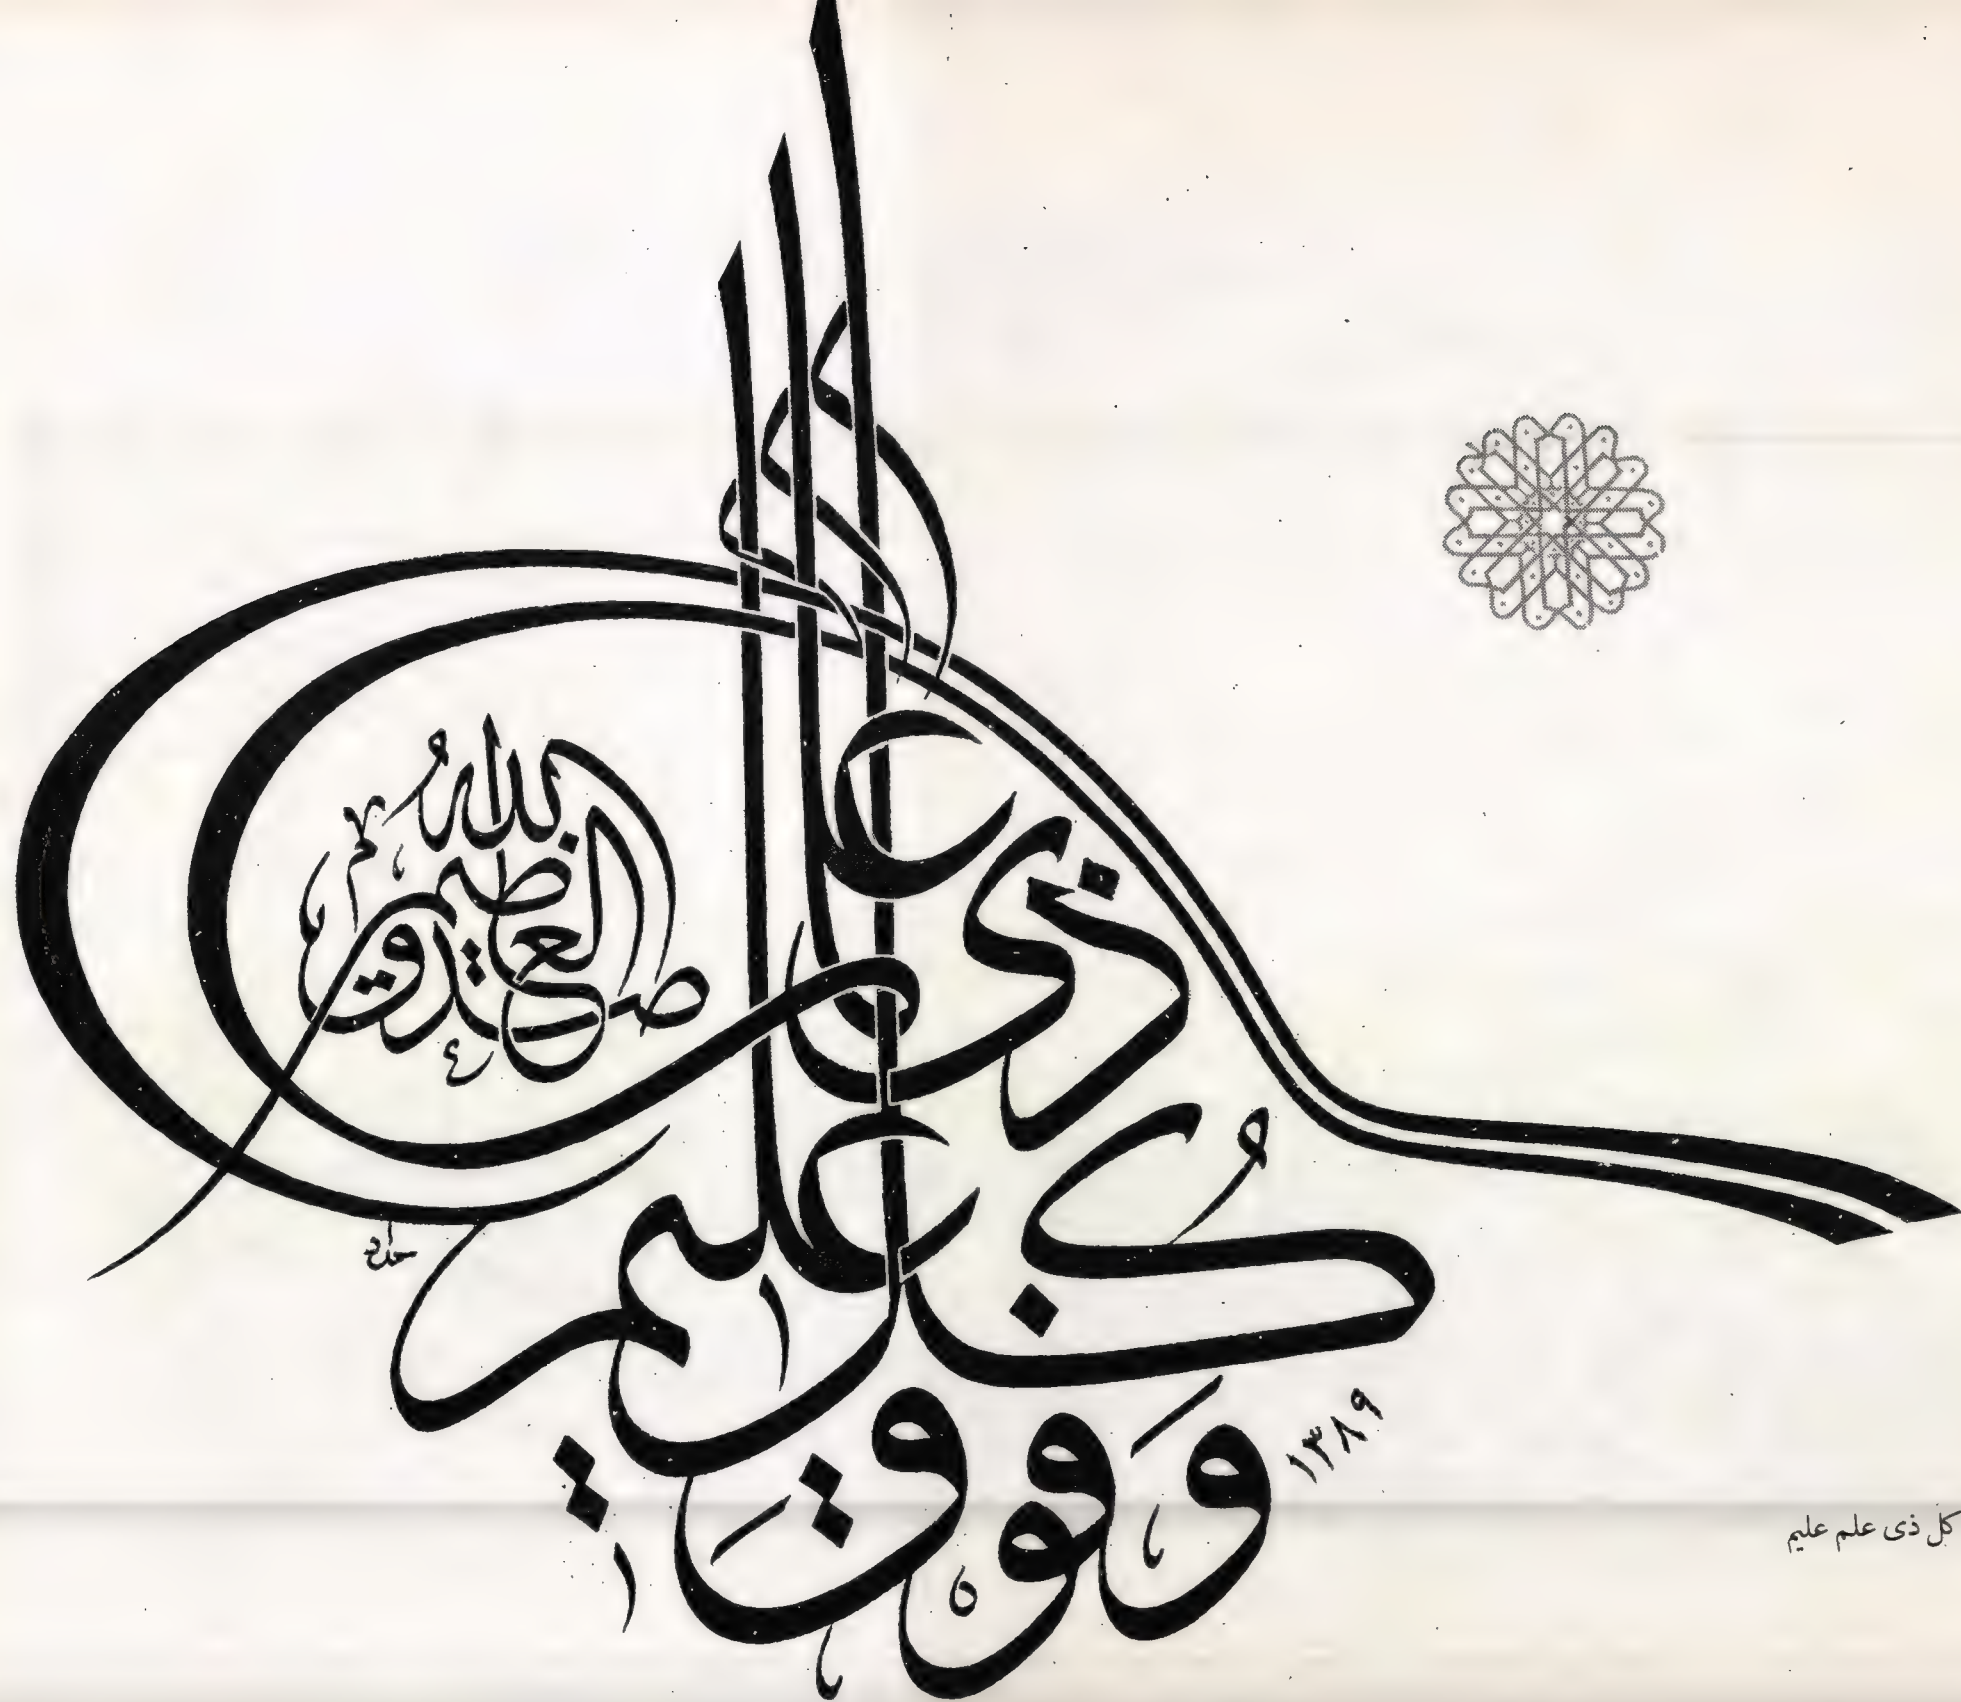 وَفَوْقَ كُلِّ ذِي عِلْمٍ عَلِيمٌ
صدق الله العظيم
حامد
١٣٨٩
كل ذى علم عليم